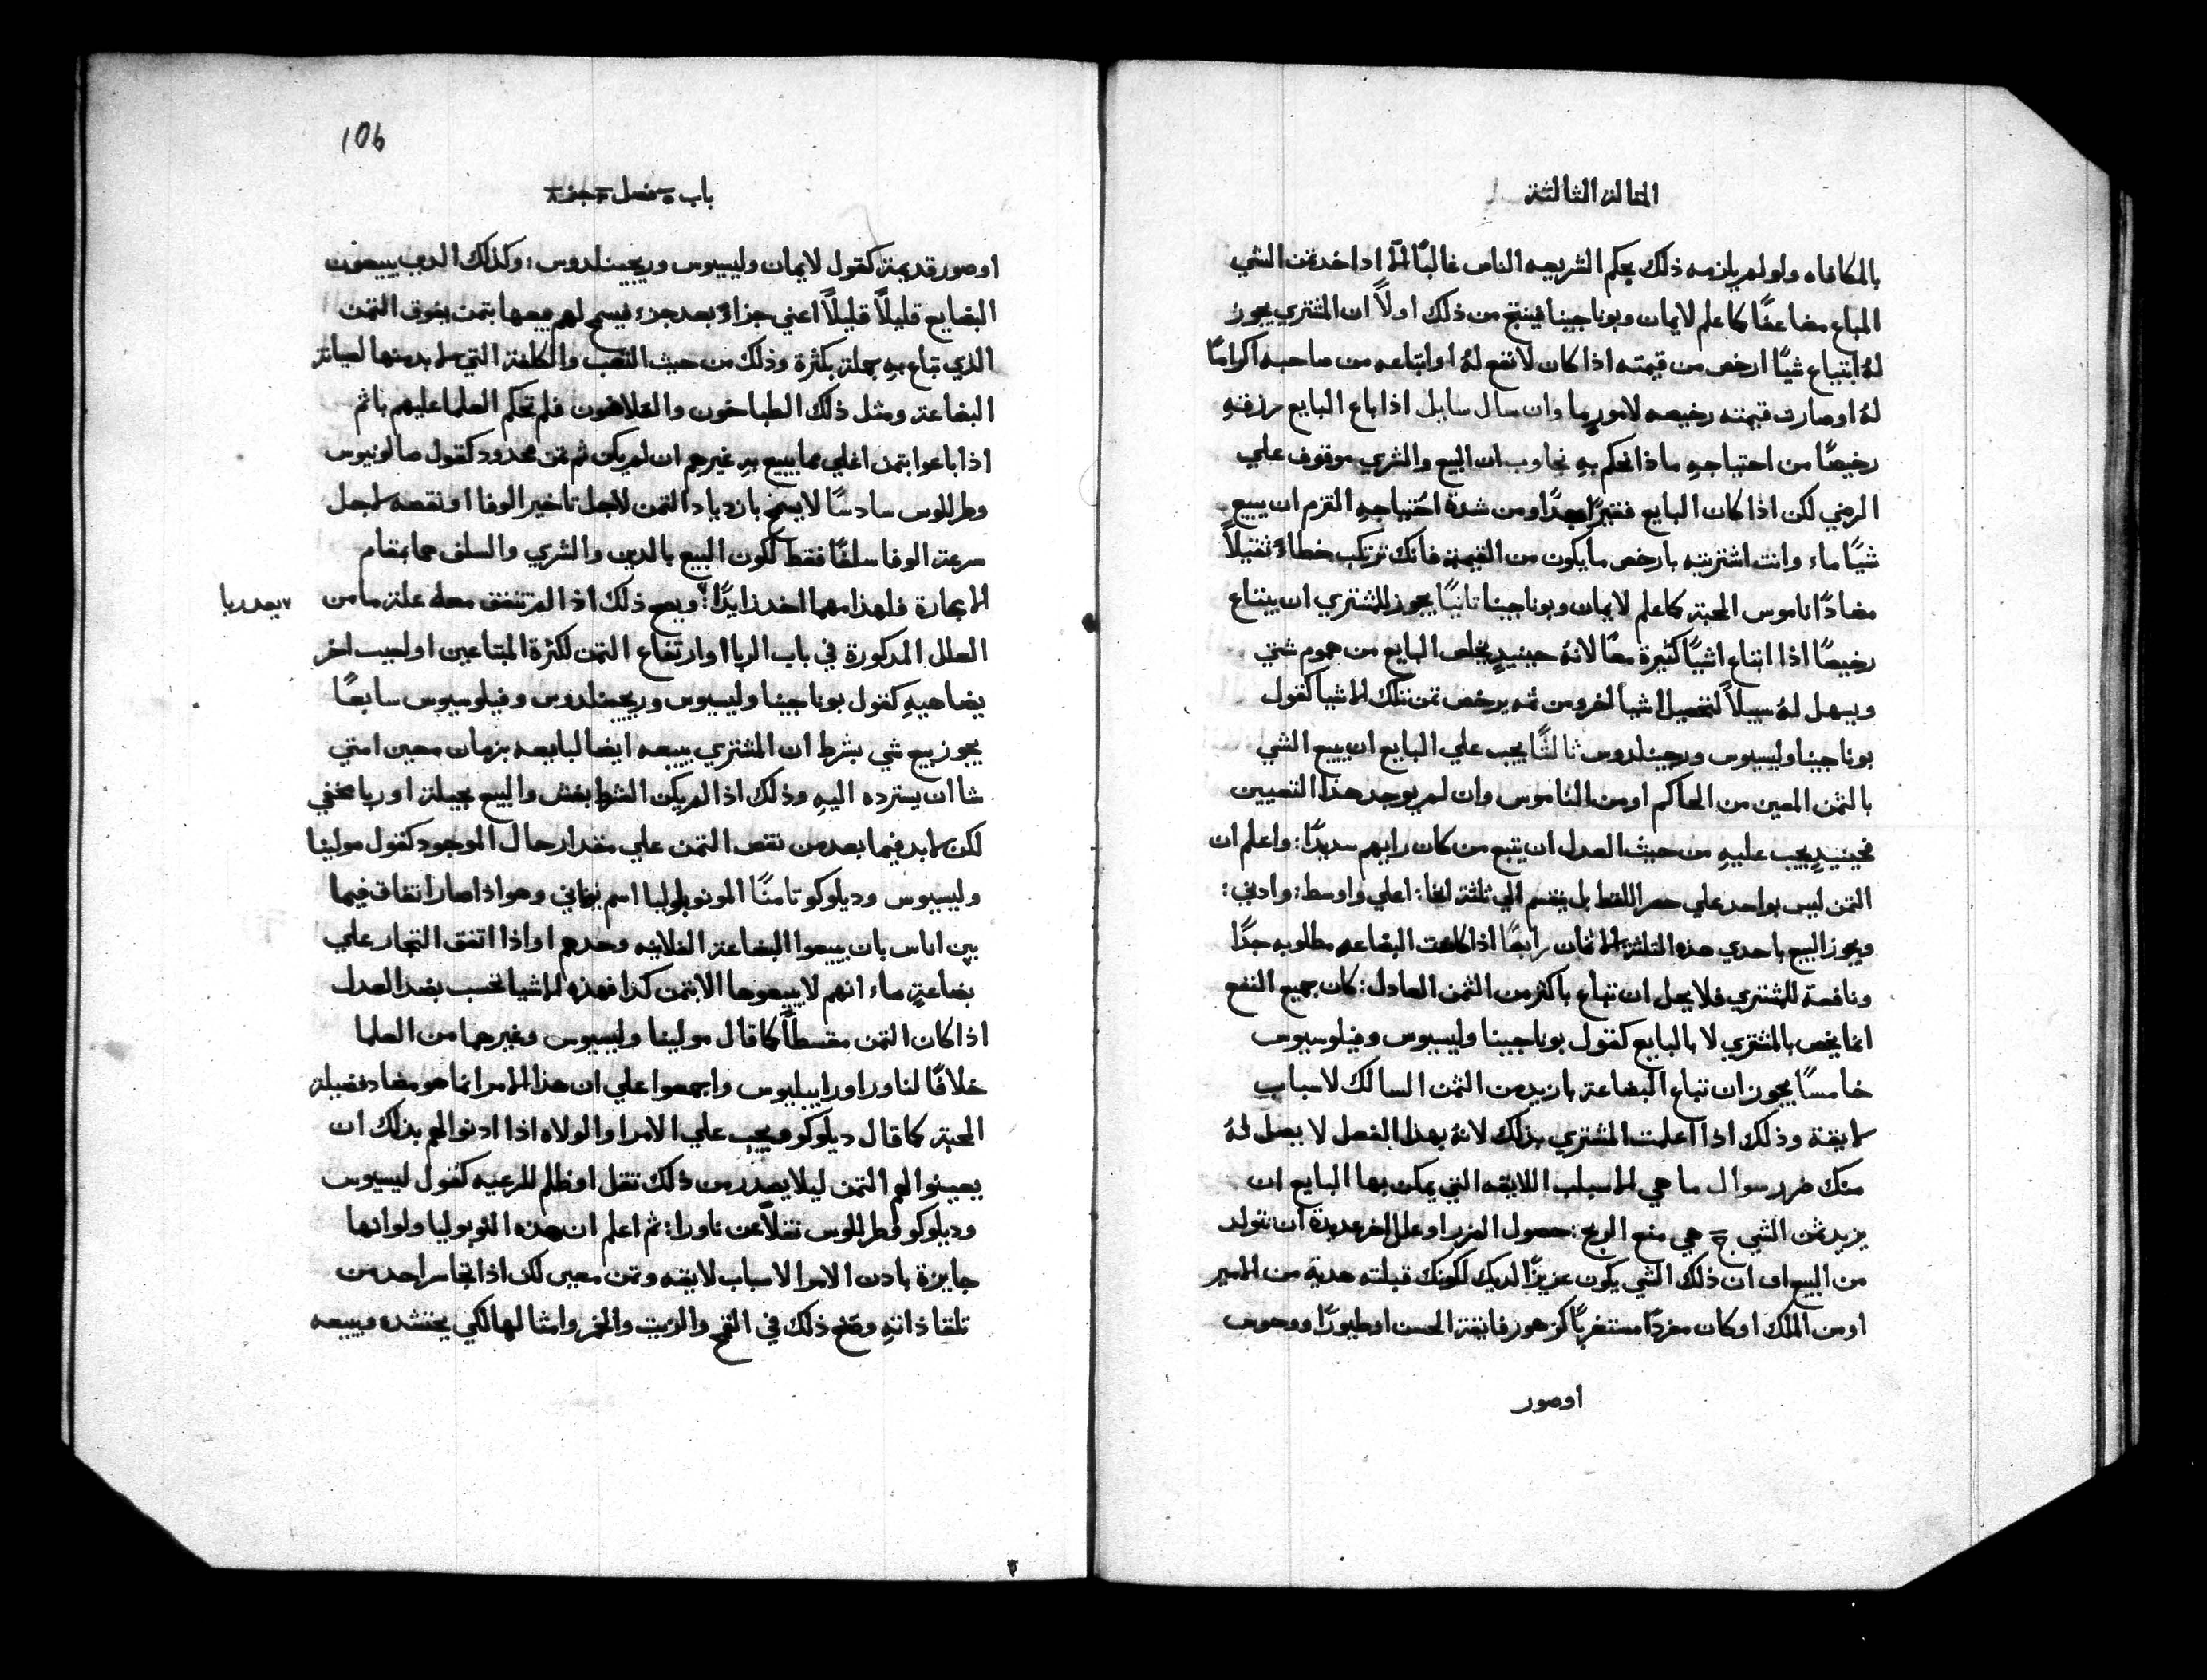 المقالة الثالثة
بالمكافاه ولو لم يلزمه ذلك بحكم الشريعه الناس غالبًا الّا اذا اخد ثمن الشي
المباع مضاعفًا كما علم لايمان وبوناجينا فينتج من ذلك اولاً ان المشتري يجوز
لهُ ابتياع شيًا ارخص من قيمته اذا كان لا نفع لهُ او ابتاعه من صاحبه اكرامًا
لهُ او صارت قيمته رخيصه لامورٍ ما وان سال سايل اذا باع البايع رزقهِ
رخيصًا من احتياجهِ ماذا نحكم بهِ نجاوب ان البيع والشري موقوف علي
الرضي لكن اذا كان البايع فقيرًا جدًا ومن شدة احتياجهِ التزم ان يبيع
شيًا ماء وانت اشتريته بارخص ما يكون من القيمة فانك ترتكب خطاءً ثقيلاً
مضادًا ناموس المحبة كما علم لايمان وبوناجينا ثانيًا يجوز للمشتري ان يبتاع
رخيصًا اذا ابتاع اشيًا كثيرة معًا لانهُ حينيدٍ يخلص البايع من هموم شتي
ويسهل لهُ سبيلاً لتحصيل اشيا اخر ومن ثمه يرخص ثمن تلك الاشيا كقول
بوناجينا وليسيوس وريجينلدوس ثالثًا يجب علي البايع ان يبيع الشي
بالثمن المعين من الحاكم او من الناموس وان لم يوجد هذا التعيين
فحينيدٍ يجب عليهِ من حيث العدل ان يتبع من كان رايهم سديدًا: واعلم ان
الثمن ليس بواحد علي حصر اللفظ بل ينقسم الي ثلثة انحا: اعلي واوسط: وادني:
ويجوز البيع باحدي هذه الثلثة الاثمان رابعًا اذا كانت البضاعه مطلوبه جدًا
ونافعة للمشتري فلا يحل ان تباع باكثر من الثمن العادل: كان جميع النفع
انما يخص بالمشتري لا بالبايع كقول بوناجينا وليسيوس وفيلوسيوس
خامسًا يجوز ان تباع البضاعة بازيد من الثمن السالك لاسباب
لايقة وذلك اذا اعلمت المشتري بذلك لانهُ بهذا الفعل لا يصل لهُ
منك ضرر سوال ما هي الاسباب اللايقه التي يمكن بها البايع ان
يزيد ثمن الشي ج هي منع الربح: حصول الضرر او علل اخر عديدة ان تتولد
من البيع او ان ذلك الشي يكون عزيزًا لديك لكونك قبلته هدية من الامير
او من الملك او كان مفردًا مستغربًا كزهور فايقة الحسن او طيورًا ووحوش
اوصور
106
باب ٥ فصل ٣ جز ٨
او صور قديمة كقول لايمان وليسيوس وريجينلدوس: وكذلك الدين يبيعون
البضايع قليلاً قليلاً اعني جزاءً بعد جزء فيسمح لهم بيعها بثمن يفوق الثمن
الذي تباع بهِ جملة بكثرة وذلك من حيث التعب والكلفة التي لا بد منها لصيانة
البضاعة ومثل ذلك الطباخون والفلاحون فلم تحكم العلما عليهم باثم
اذا باعوا بثمن اغلي مما يبيع بهِ غيرهم ان لم يكن ثم ثمن محدود كقول صالونيوس
وطرللوس سادسًا لا يسمح بازدياد الثمن لاجل تاخير الوفا او نقصه لاجل
سرعة الوفا سلفًا فقط لكون البيع بالدين والشري والسلف هما بمقام
الاعارة فلهذا مهما اخد زايدًا؟ ويصح ذلك اذا لم تتفق معه علة ما من
يعد ربا
العلل المدكورة في باب الربا او ارتفاع الثمن لكثرة المبتاعين او لسبب اخر
يضاهيهِ كقول بوناجينا وليسيوس وريجينلدوس وفيلوسيوس سابعًا
يجوز بيع شي بشرط ان المشتري يبيعه ايضا لبايعه بزمان معين امتي
شا ان يسترده اليهِ وذلك اذا لم يكن الشرا بغش والبيع بحيلة او ربا مخفي
لكن لا بد فيما بعد من نقص الثمن علي مقدار حال الموجود كقول مولينا
وليسيوس وديلوكو ثامنًا المونوبوليا اسم يوناني وهو اذا صار اتفاق فيما
بين اناس بان يبيعوا البضاعة الفلانيه وحدهم او اذا اتفق التجار علي
بضاعةٍ ماء انهم لا يبيعوها الا بثمن كذا فهذه الاشيا تحسب بضد العدل
اذا كان الثمن مقسطاً كما قال مولينا وليسيوس وغيرهما من العلما
خلافًا لناورا وراييليوس واجمعوا علي ان هذا الامر انما هو مضاد فضيلة
المحبة كما قال ديلوكو ويجب علي الامرا والولاه اذا ادنوا لهم بذلك ان
يعينوا لهم الثمن ليلا يصدر من ذلك ثقل او ظلم للرعيه كقول ليسيوس
وديلوكو وطرللوس نقلاً عن ناورا: ثم اعلم ان هذه المونوبوليا ولو انها
جايزة بادن الامرا لاسباب لايقه وثمن معين لكن اذا تجاسر احد من
تلقا ذاتهِ وصنع ذلك في القمح والزيت والخمر وامثالها لكي يحتشده ويبيعه